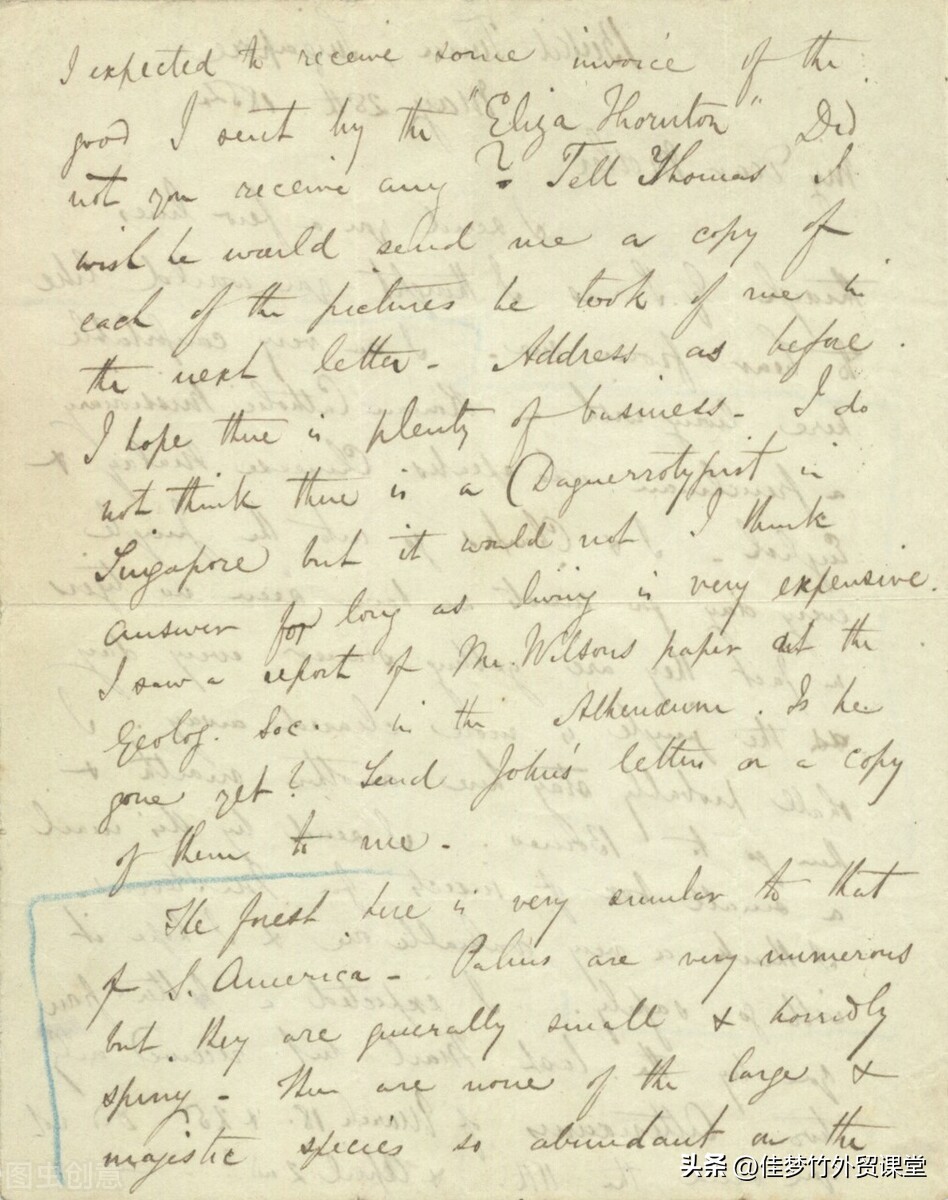 I expected to receive some invoice of the
good I sent by the "Eliza Thornton" Did
not you receive any? Tell Thomas I
wish he would send me a copy of
each of the pictures he took of me in
the next letter - Address as before.
I hope there is plenty of business - I do
not think there is a Daguerrotypist in
Singapore but it would not I think
answer for long as living is very expensive.
I saw a report of Mr. Wilsons paper at the
Geolog. Soc. in the Athenæum. Is he
gone yet? Send John's letters or a copy
of them to me -
The forest here is very similar to that
of S. America - Palms are very numerous
but they are generally small & horridly
spiny - There are none of the large &
majestic species so abundant on the
图虫创意
头条 @佳梦竹外贸课堂